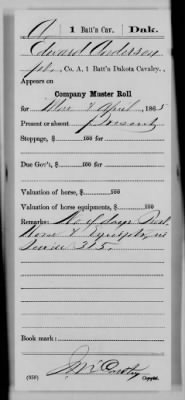 A | 1 Batt'n Cav. | Dak.
Edward Anderson
Pvt., Co. A, 1 Batt'n Dakota Cavalry.
Appears on
Company Muster Roll
for Mar & April, 1865
Present or absent Present
Stoppage, $ 100 for
Due Gov't, $ 100 for
Valuation of horse, $ 100
Valuation of horse equipments, $ 100
Remarks:
Horse & Equipts, in
Service
Book mark:
(358) Copyist.